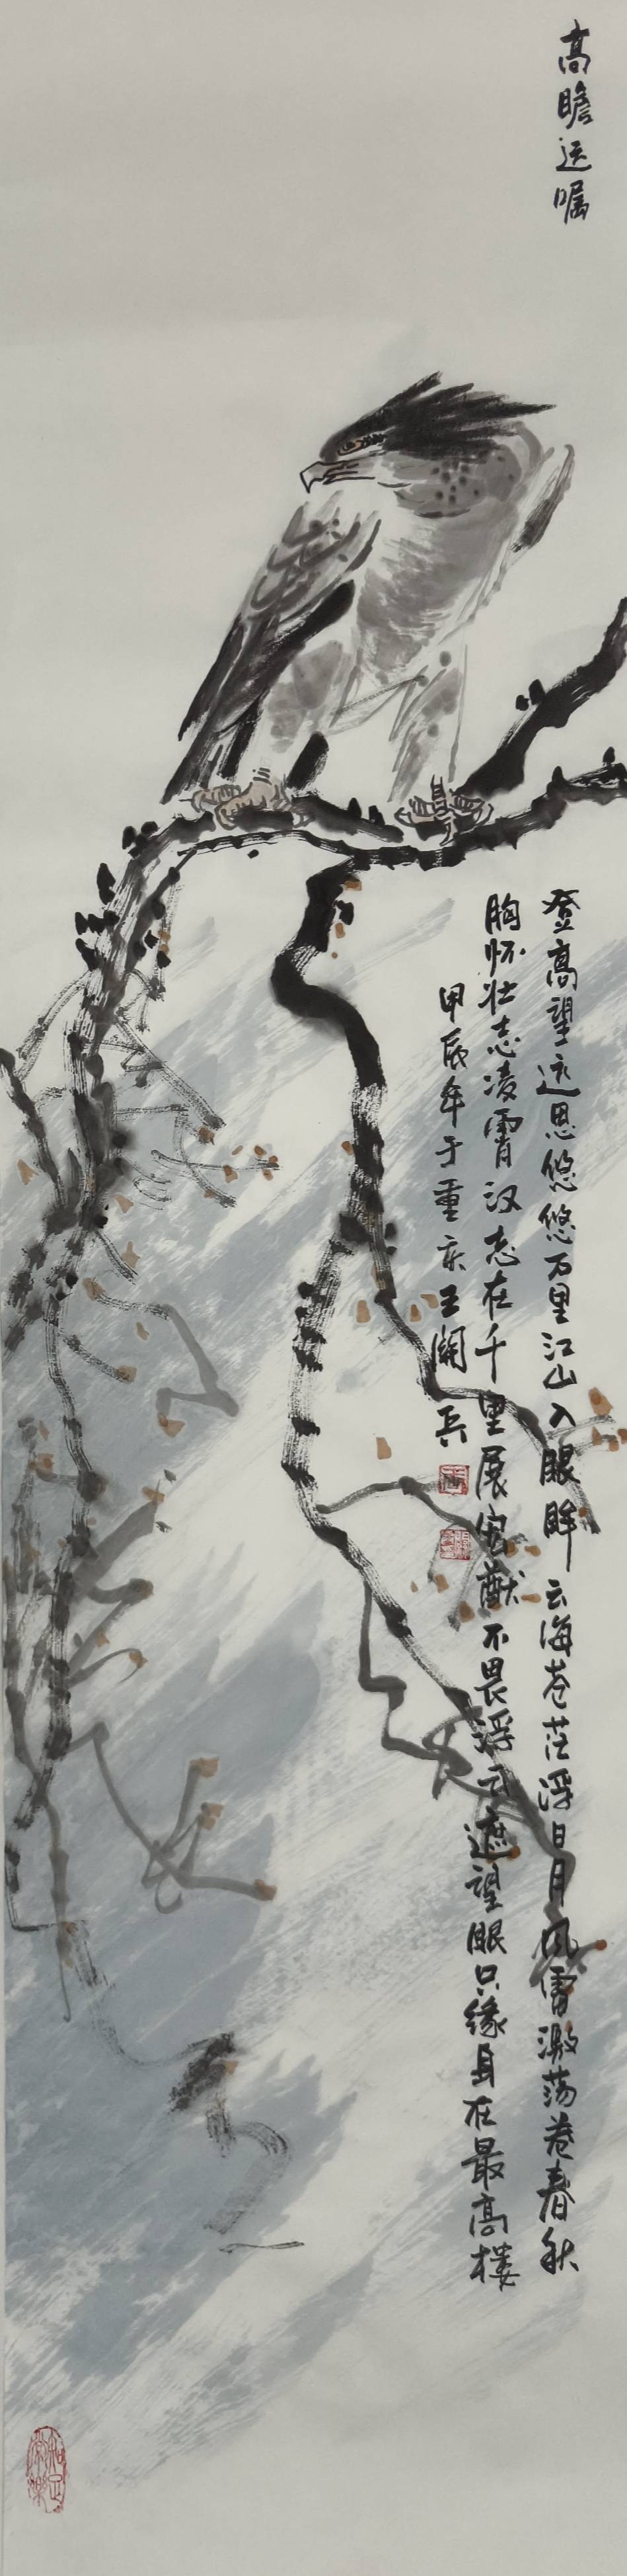 高瞻远嘱
登高望远思悠悠万里江山入眼眸云海苍茫浮日月风雷激荡卷春秋
胸怀壮志凌霄汉志在千里展宏猷不畏浮云遮望眼只缘身在最高楼
甲辰年于重庆王阔兵
知足常乐